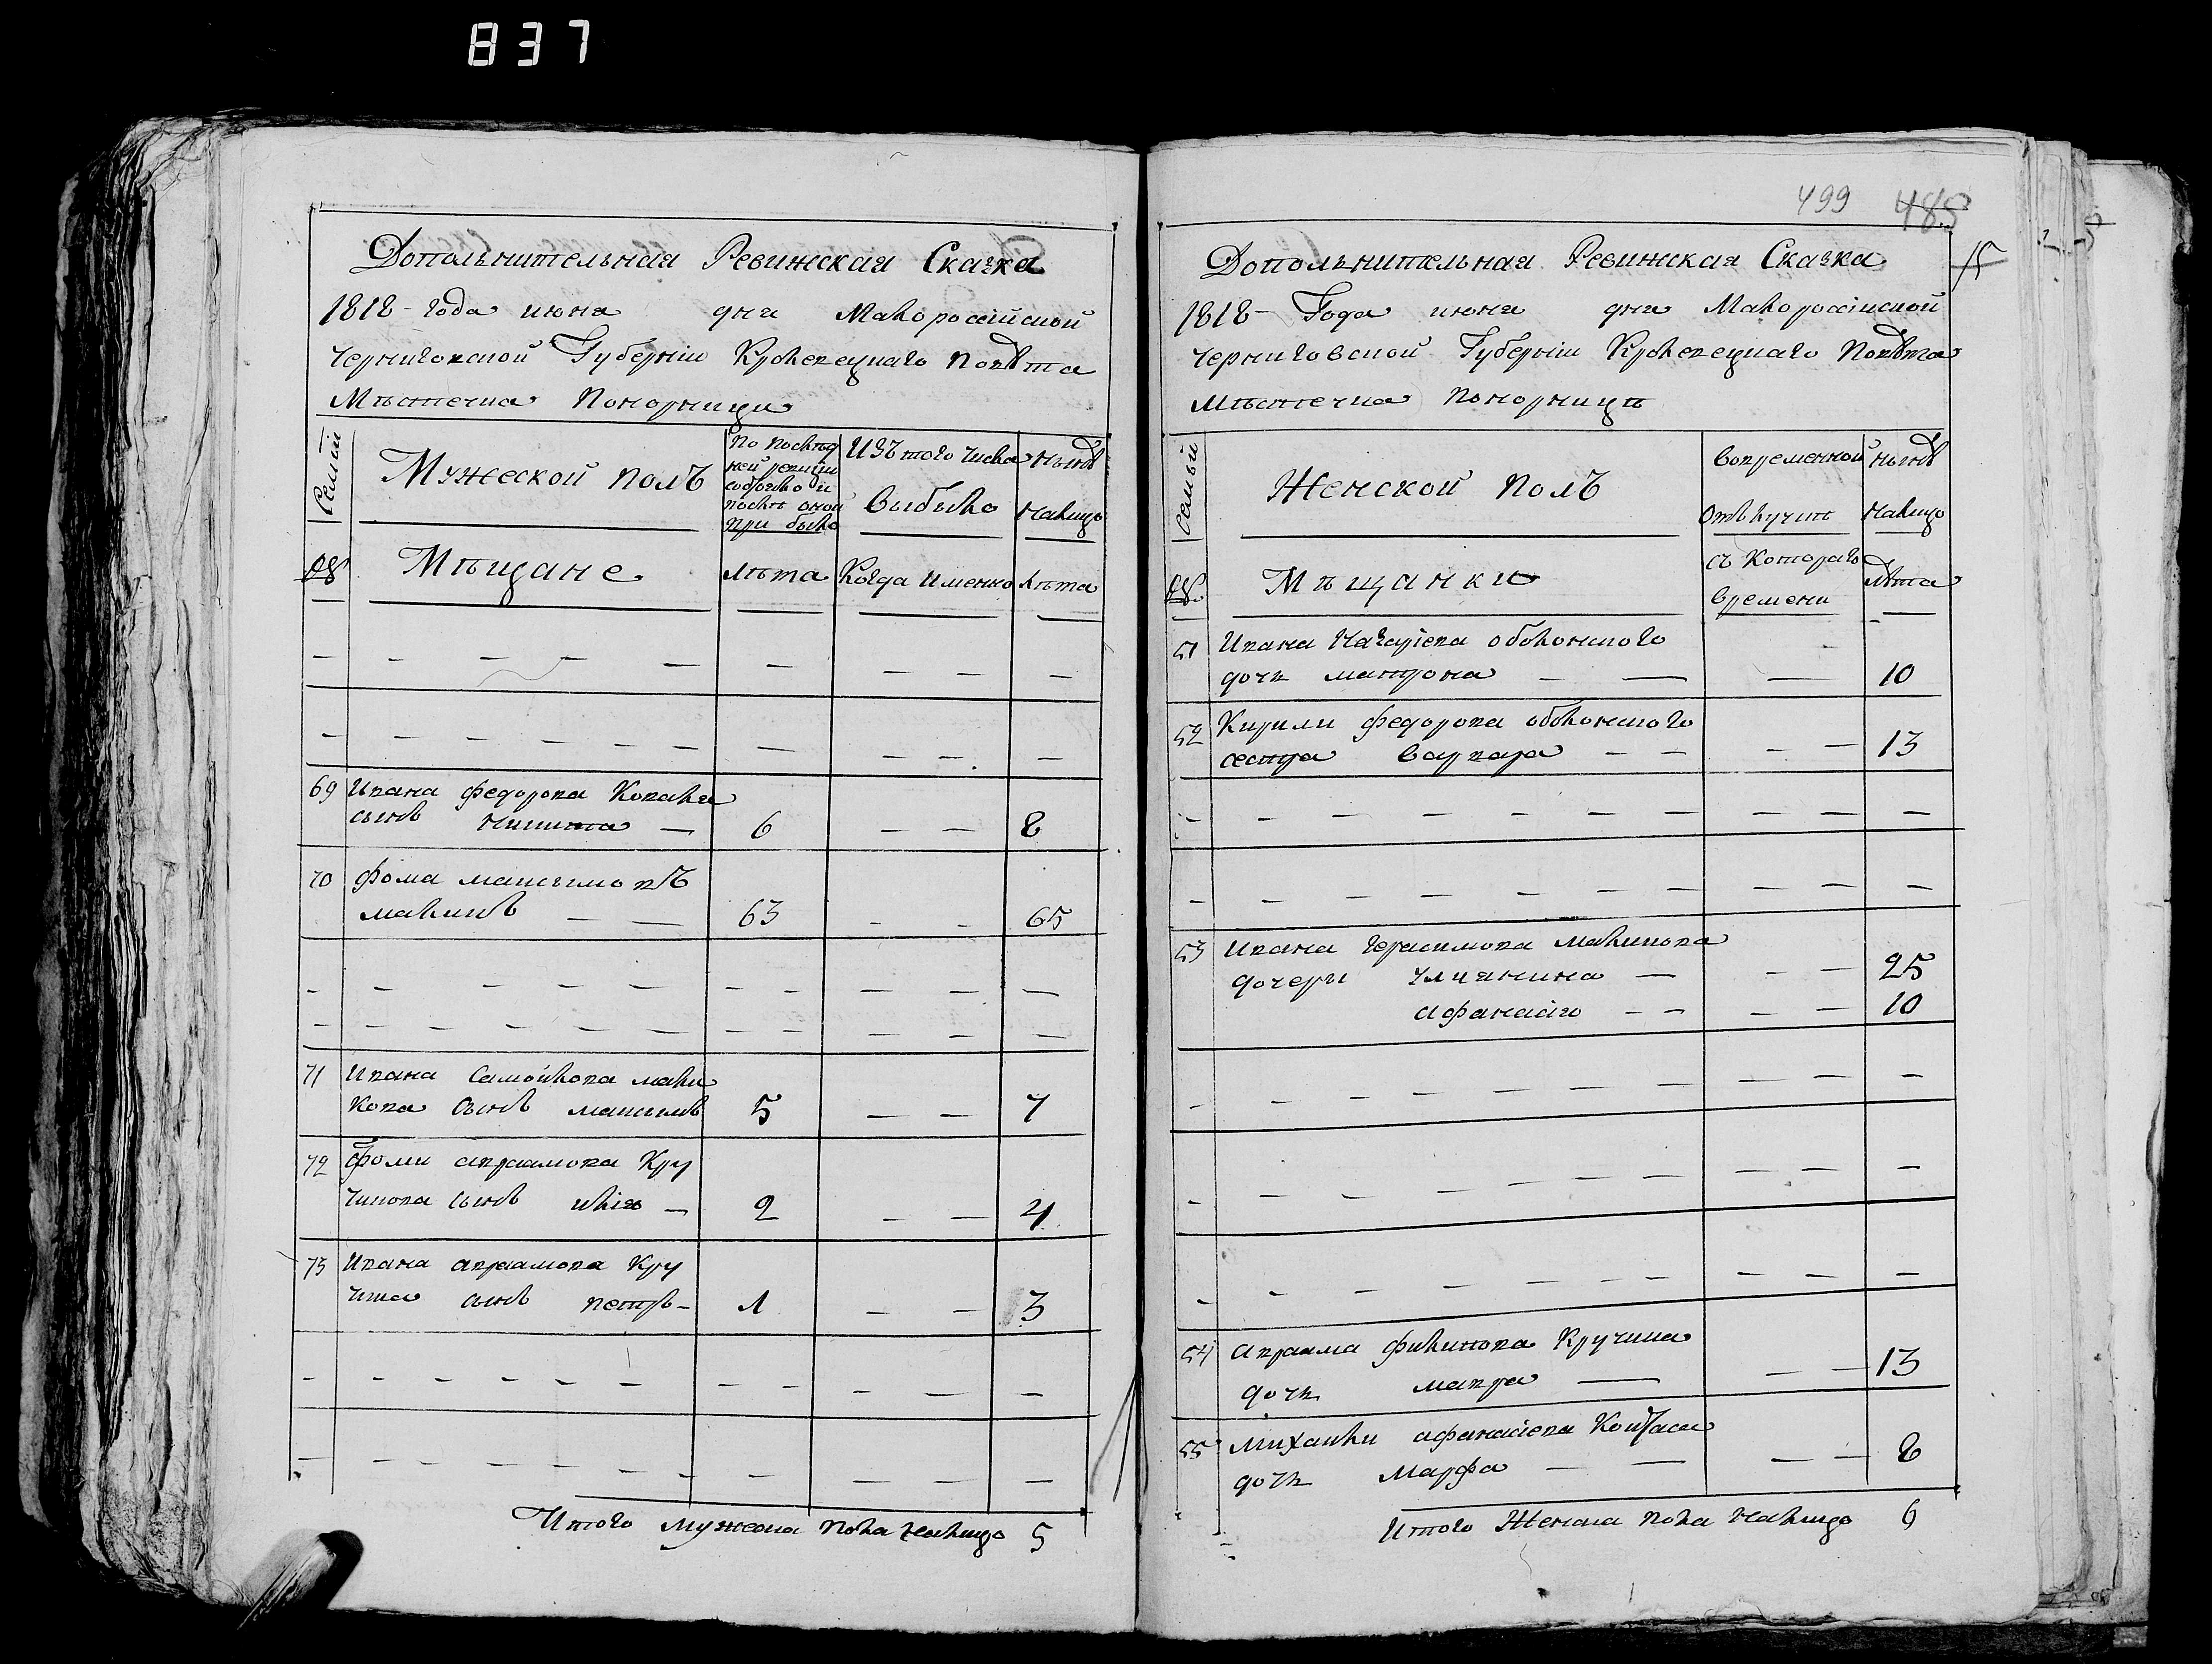 837
499 485
15
Дополнительная Ревижская Сказка
1818 - года июня дня Малороссійской
Черниговской Губерніи Кролевецкаго Повѣта
Мѣстечка Понорници
Семьи
№
Мужеской полъ
По послѣд
ней ревизіи
состояло и
послѣ оной
при было
Изъ того числа
выбыло
Нынѣ
налицо
Мѣщане
Лѣта
Когда Именно
Лѣта
69 Ивана Федорова Коваля
сынъ Никита — 6 — — 8
70 Фома Максимовъ
Маликъ — — 63 — — 65
71 Ивана Самойлова Мали
кова сынъ Максимъ 5 — — 7
72 Фоми Авраамова Кру
чикова сынъ Илія — 2 — — 4
73 Ивана Авраамова Кру
чика сынъ Петръ — 1 — — 3
Итого мужеска пола налицо 5
Дополнительная Ревижская Сказка
1818 - Года июня дня Малороссійской
Черниговской Губерніи Кролевецкаго Повѣта
Мѣстечка Понорницѣ
Семьи
№
Женской полъ
Вовременной
Отълучкѣ
Нынѣ
Налицо
Мѣщанки
Съ Котораго
Времени
Лѣта
51 Ивана Назаріева Оболонского
дочь Матрона — — — 10
52 Кирили Федорова Оболонского
сестра Варвара — — — — 13
53 Ивана Герасимова Маликова
дочери Улиянина — — — 25
Афанасія — — — — 10
54 Авраама Филипова Кручика
дочь Мавра — — — 13
55 Михайли Афанасіева
дочь Марфа — — — — 8
Итого Женска пола налицо 6